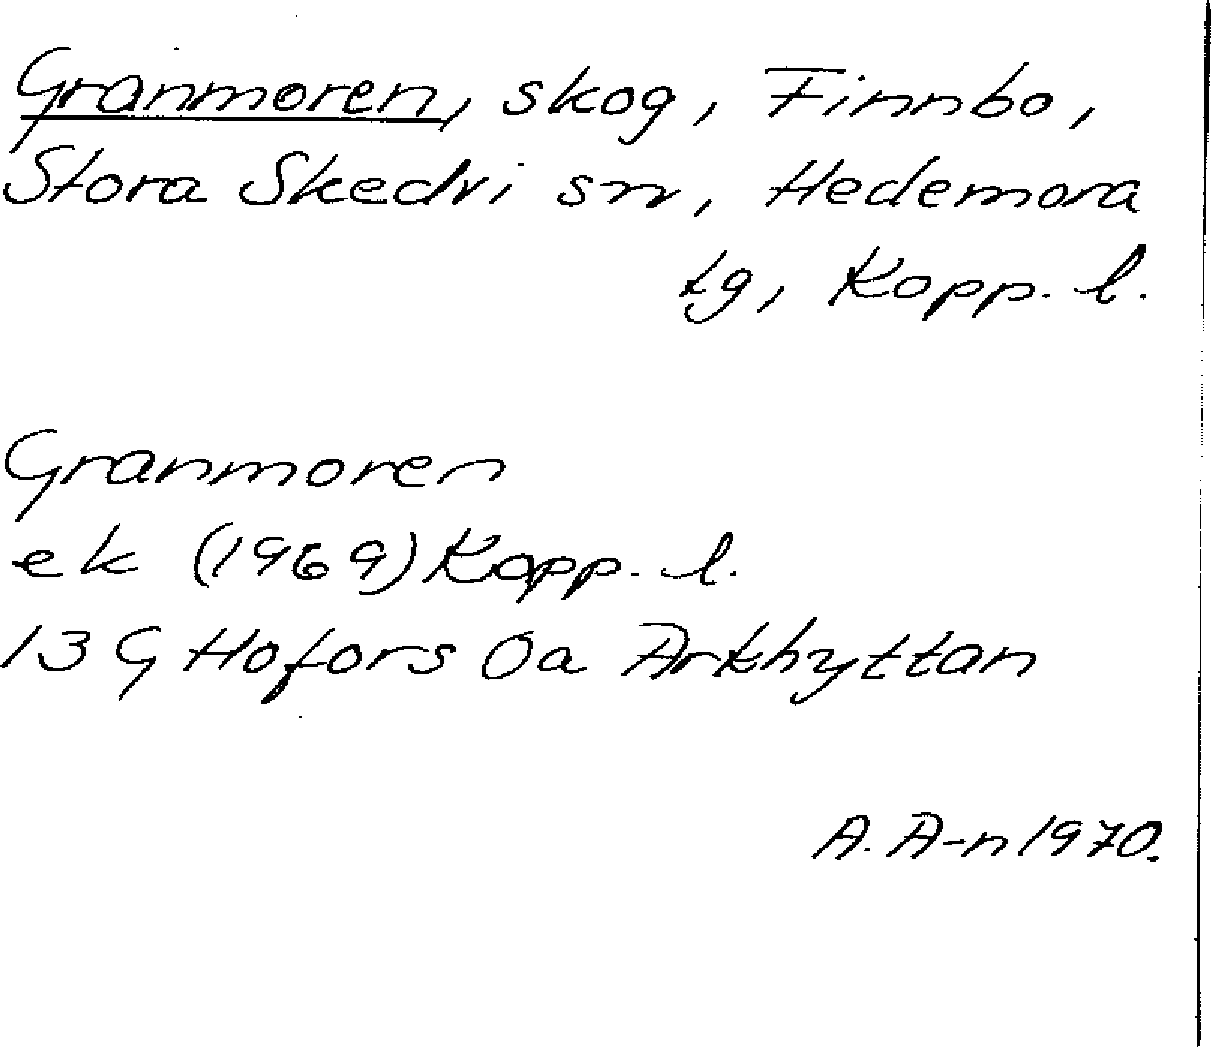 Granmoren, skog, Finnbo,
Stora Skedvi sn, Hedemora
tg, Kopp. l.
Granmoren
ek (1969) Kopp. l.
13 G Hofors 0a Arkhyttan
A. A-n 1970.